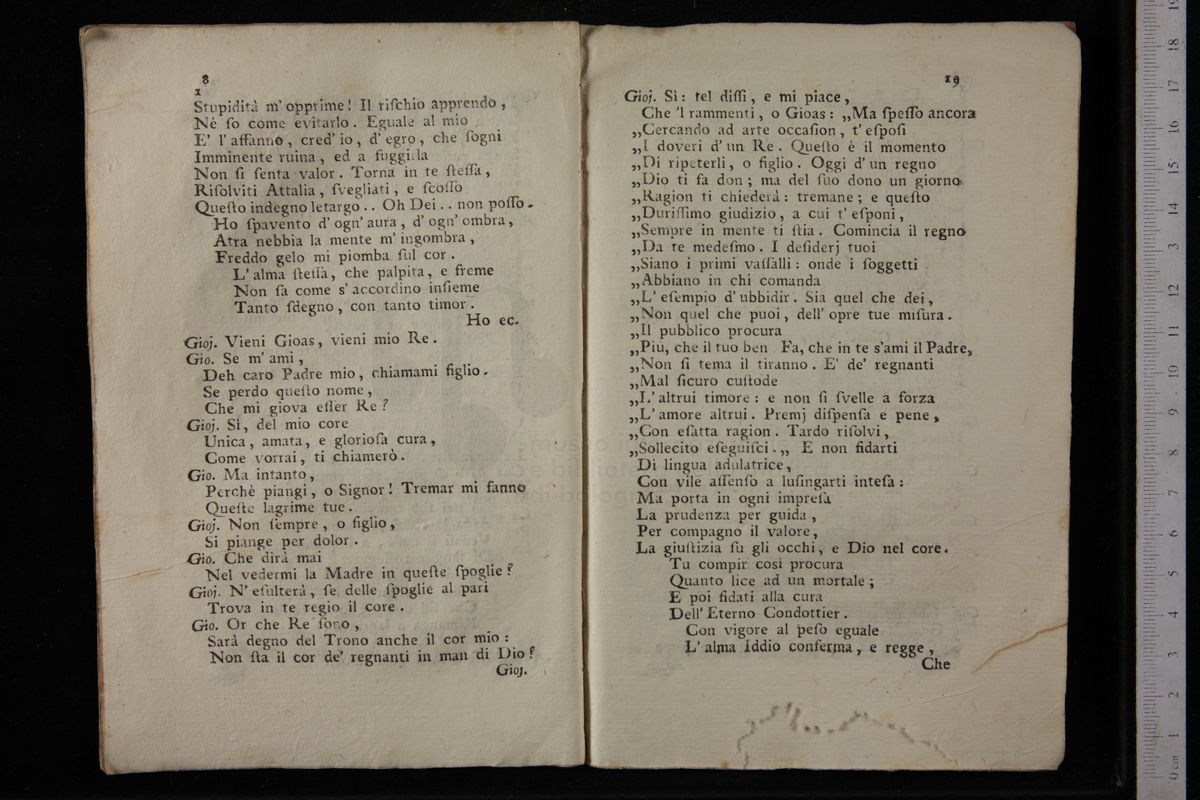 8
1
Stupidità m' opprime! Il riſchio apprendo,
Nè ſo come evitarlo. Eguale al mio
E' l' affanno, cred' io, d' egro, che ſogni
Imminente ruina, ed a fuggirla
Non ſi ſenta valor. Torna in te ſteſſa,
Riſolviti Attalia, ſvegliati, e ſcoſſo
Queſto indegno letargo.. Oh Dei.. non poſſo.
Ho ſpavento d' ogn' aura, d' ogn' ombra,
Atra nebbia la mente m' ingombra,
Freddo gelo mi piomba ſul cor.
L' alma ſteſſa, che palpita, e freme
Non ſa come s' accordino inſieme
Tanto ſdegno, con tanto timor.
Ho ec.
Gioj. Vieni Gioas, vieni mio Re.
Gio. Se m' ami,
Deh caro Padre mio, chiamami figlio.
Se perdo queſto nome,
Che mi giova eſſer Re?
Gioj. Sì, del mio core
Unica, amata, e glorioſa cura,
Come vorrai, ti chiamerò.
Gio. Ma intanto,
Perchè piangi, o Signor! Tremar mi fanno
Queſte lagrime tue.
Gioj. Non ſempre, o figlio,
Si piange per dolor.
Gio. Che dirà mai
Nel vedermi la Madre in queſte ſpoglie?
Gioj. N' eſulterà, ſe delle ſpoglie al pari
Trova in te regio il core.
Gio. Or che Re ſono,
Sarà degno del Trono anche il cor mio:
Non ſta il cor de' regnanti in man di Dio?
Gioj.
19
Gioj. Sì: tel diſſi, e mi piace,
Che 'l rammenti, o Gioas: „Ma ſpeſſo ancora
„Cercando ad arte occaſion, t' eſpoſi
„I doveri d' un Re. Queſto è il momento
„Di ripeterli, o figlio. Oggi d' un regno
„Dio ti fa don; ma del ſuo dono un giorno
„Ragion ti chiederà: tremane; e queſto
„Duriſſimo giudizio, a cui t' eſponi,
„Sempre in mente ti ſtia. Comincia il regno
„Da te medeſmo. I deſiderj tuoi
„Siano i primi vaſſalli: onde i ſoggetti
„Abbiano in chi comanda
„L' eſempio d' ubbidir. Sia quel che dei,
„Non quel che puoi, dell' opre tue miſura.
„Il pubblico procura
„Più, che il tuo ben Fa, che in te s'ami il Padre,
„Non ſi tema il tiranno. E' de' regnanti
„Mal ſicuro cuſtode
„L' altrui timore: e non ſi ſvelle a forza
„L' amore altrui. Premj diſpenſa e pene,
„Con eſatta ragion. Tardo riſolvi,
„Sollecito eſeguiſci.„ E non fidarti
Di lingua adulatrice,
Con vile aſſenſo a luſingarti inteſa:
Ma porta in ogni impreſa
La prudenza per guida,
Per compagno il valore,
La giuſtizia ſu gli occhi, e Dio nel core.
Tu compir così procura
Quanto lice ad un mortale;
E poi fidati alla cura
Dell' Eterno Condottier.
Con vigore al peſo eguale
L' alma Iddio conferma, e regge,
Che